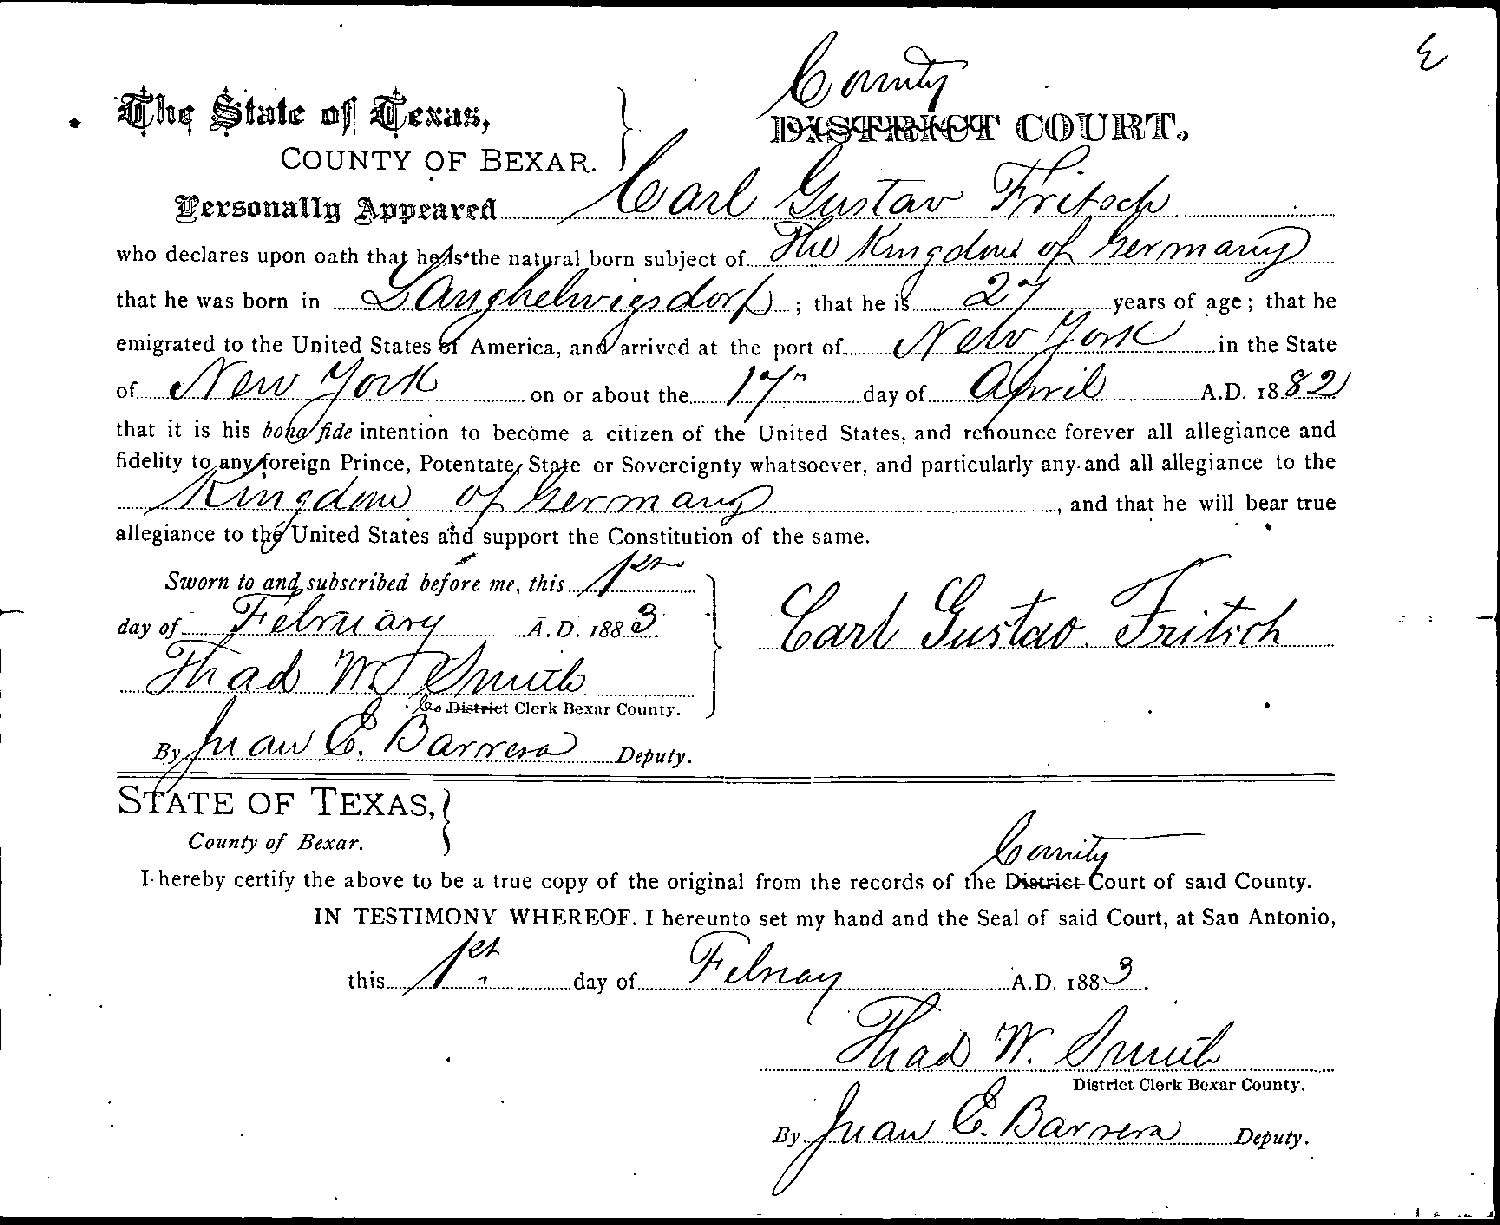 County
The State of Texas,
DISTRICT COURT.
COUNTY OF BEXAR.
Personally Appeared Carl Gustav Fritsch
who declares upon oath that he is the natural born subject of The Kingdom of Germany
that he was born in Langhelwigsdorf ; that he is 27 years of age; that he
emigrated to the United States of America, and arrived at the port of New York in the State
of New York on or about the 17th day of April A.D. 1882
that it is his bona fide intention to become a citizen of the United States, and renounce forever all allegiance and
fidelity to any foreign Prince, Potentate, State or Sovereignty whatsoever, and particularly any and all allegiance to the
Kingdom of Germany , and that he will bear true
allegiance to the United States and support the Constitution of the same.
Sworn to and subscribed before me, this 1st
day of February A.D. 1883
Carl Gustav Fritsch
Thad W. Smith
Co District Clerk Bexar County.
By Juan E. Barrera Deputy.
STATE OF TEXAS,
County of Bexar.
County
I hereby certify the above to be a true copy of the original from the records of the District Court of said County.
IN TESTIMONY WHEREOF. I hereunto set my hand and the Seal of said Court, at San Antonio,
this 1st day of Februay A.D. 1883.
Thad W. Smith
District Clerk Bexar County.
By Juan E. Barrera Deputy.